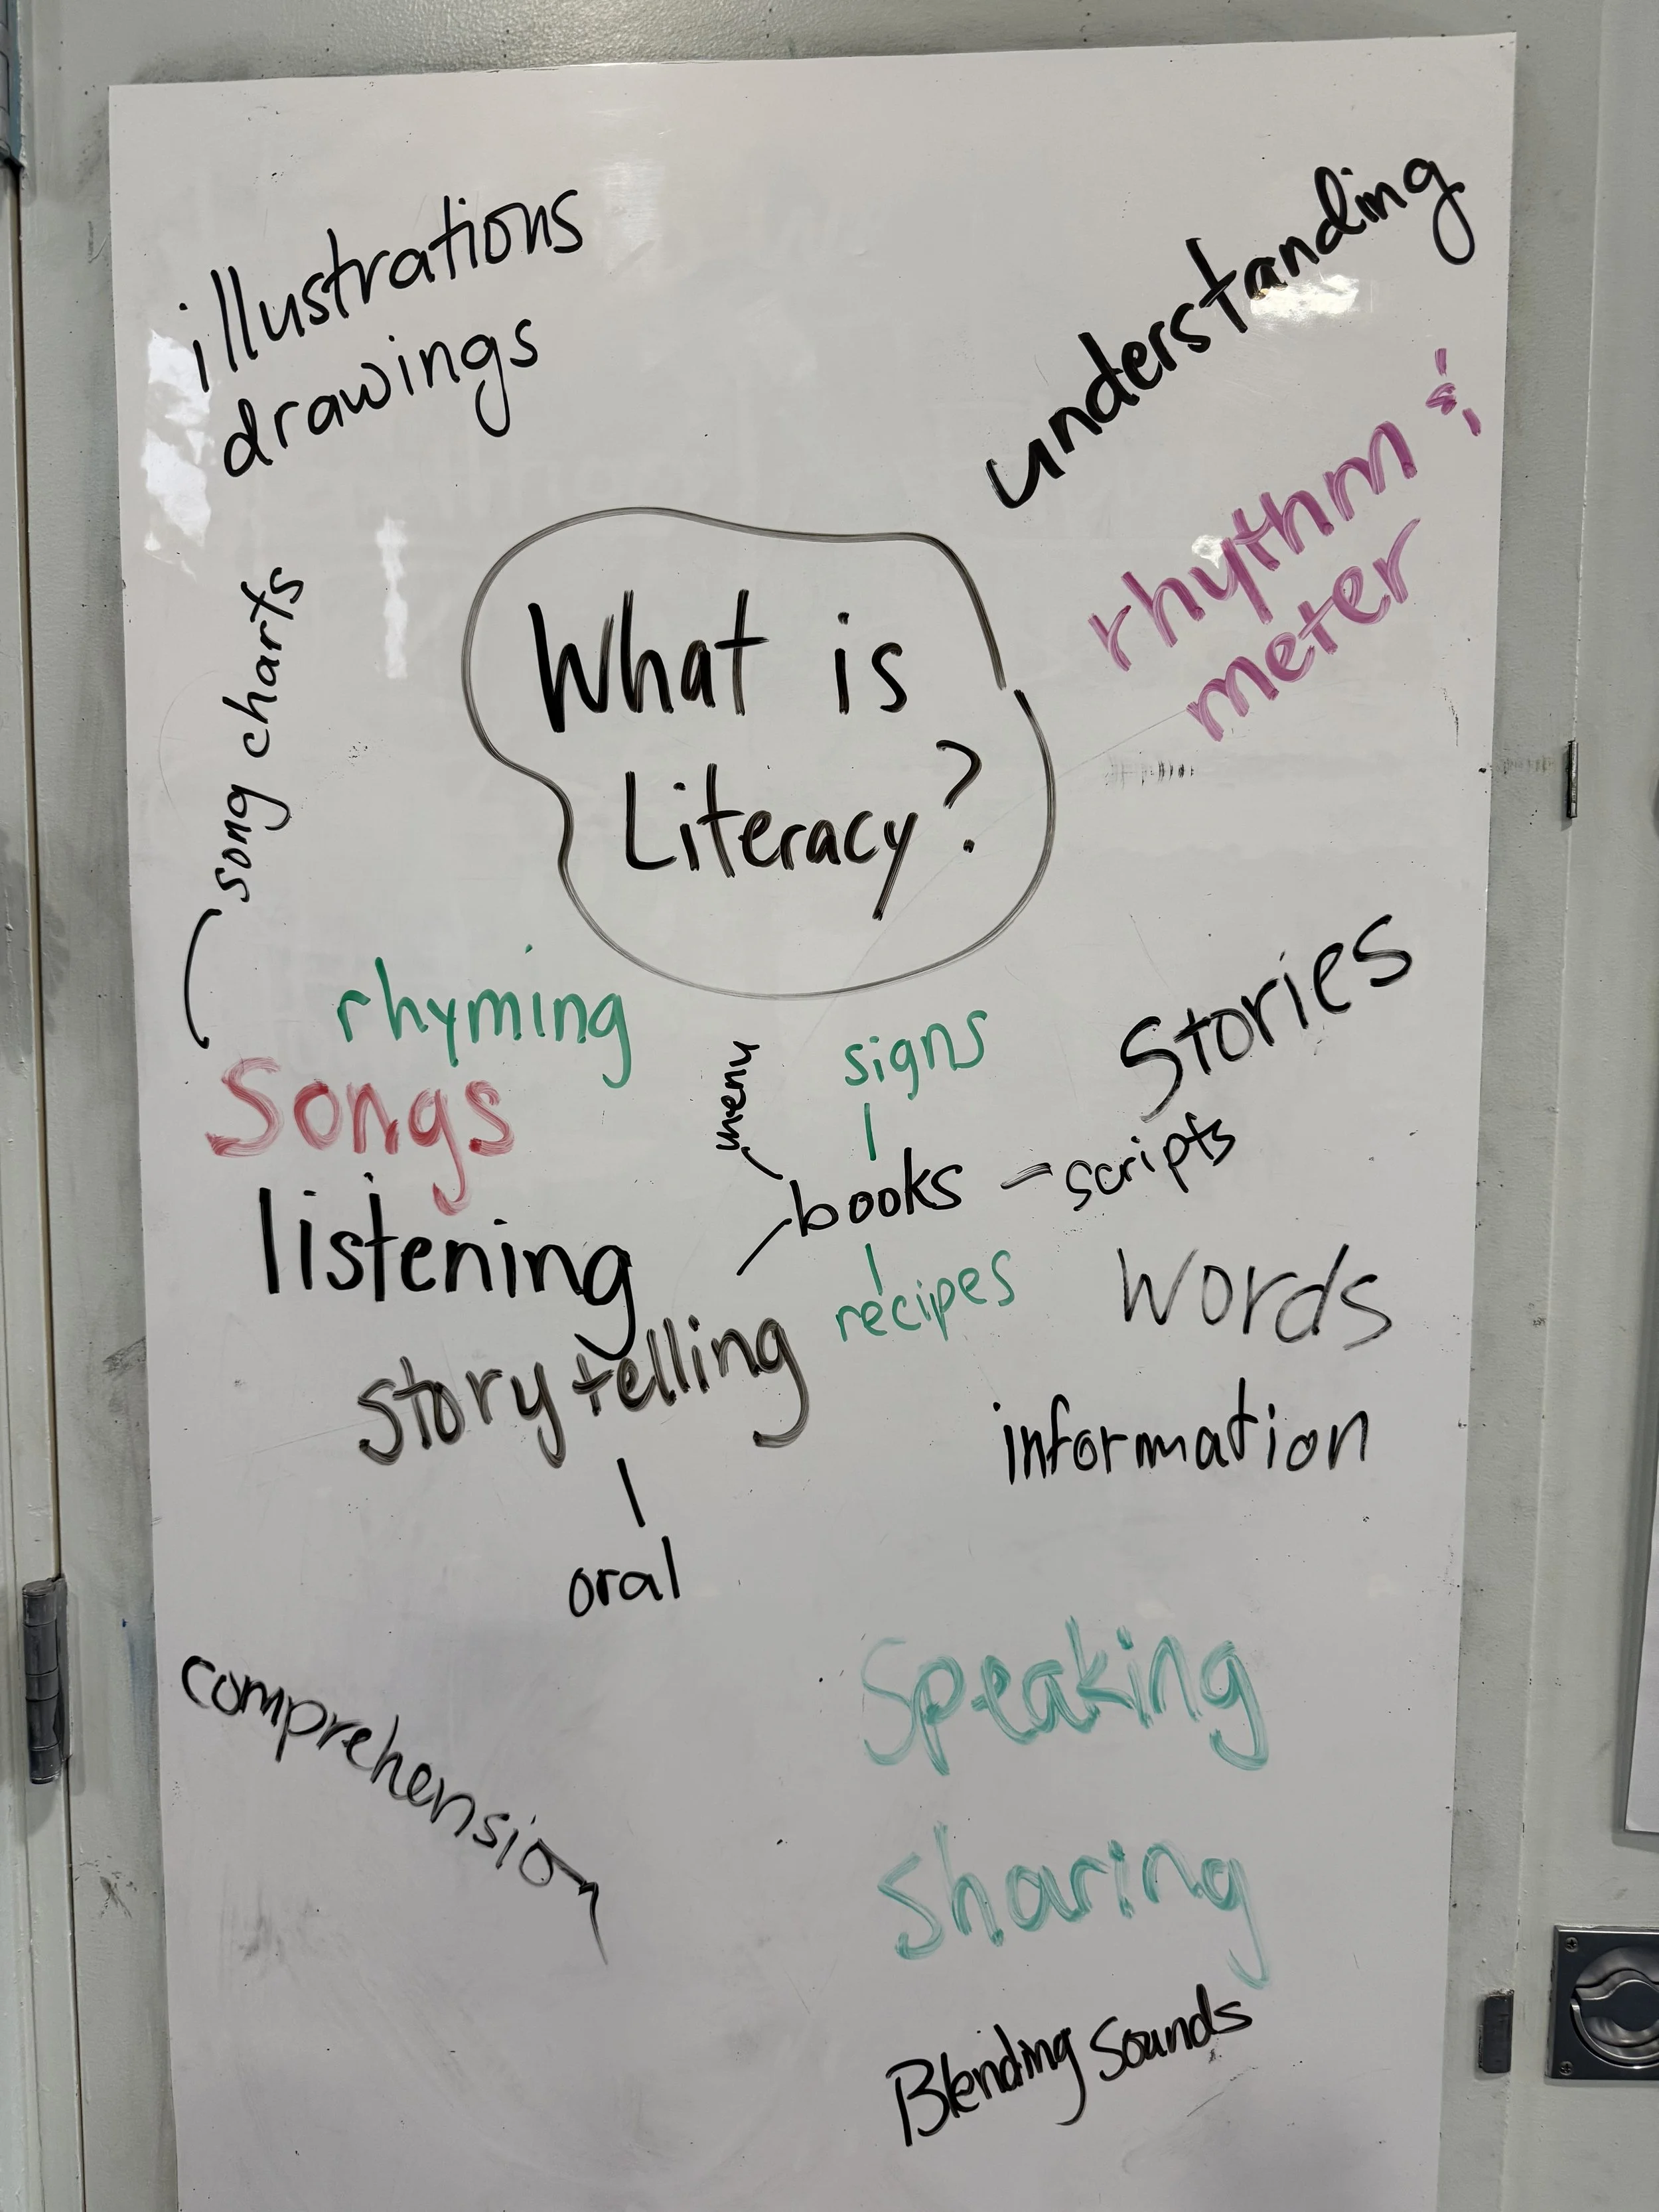 illustrations
drawings
understanding
rhythm &
meter
What is
Literacy?
song charts
rhyming
Songs
listening
storytelling
oral
menu
signs
books - scripts
recipes
Stories
words
information
comprehension
Speaking
Sharing
Blending Sounds